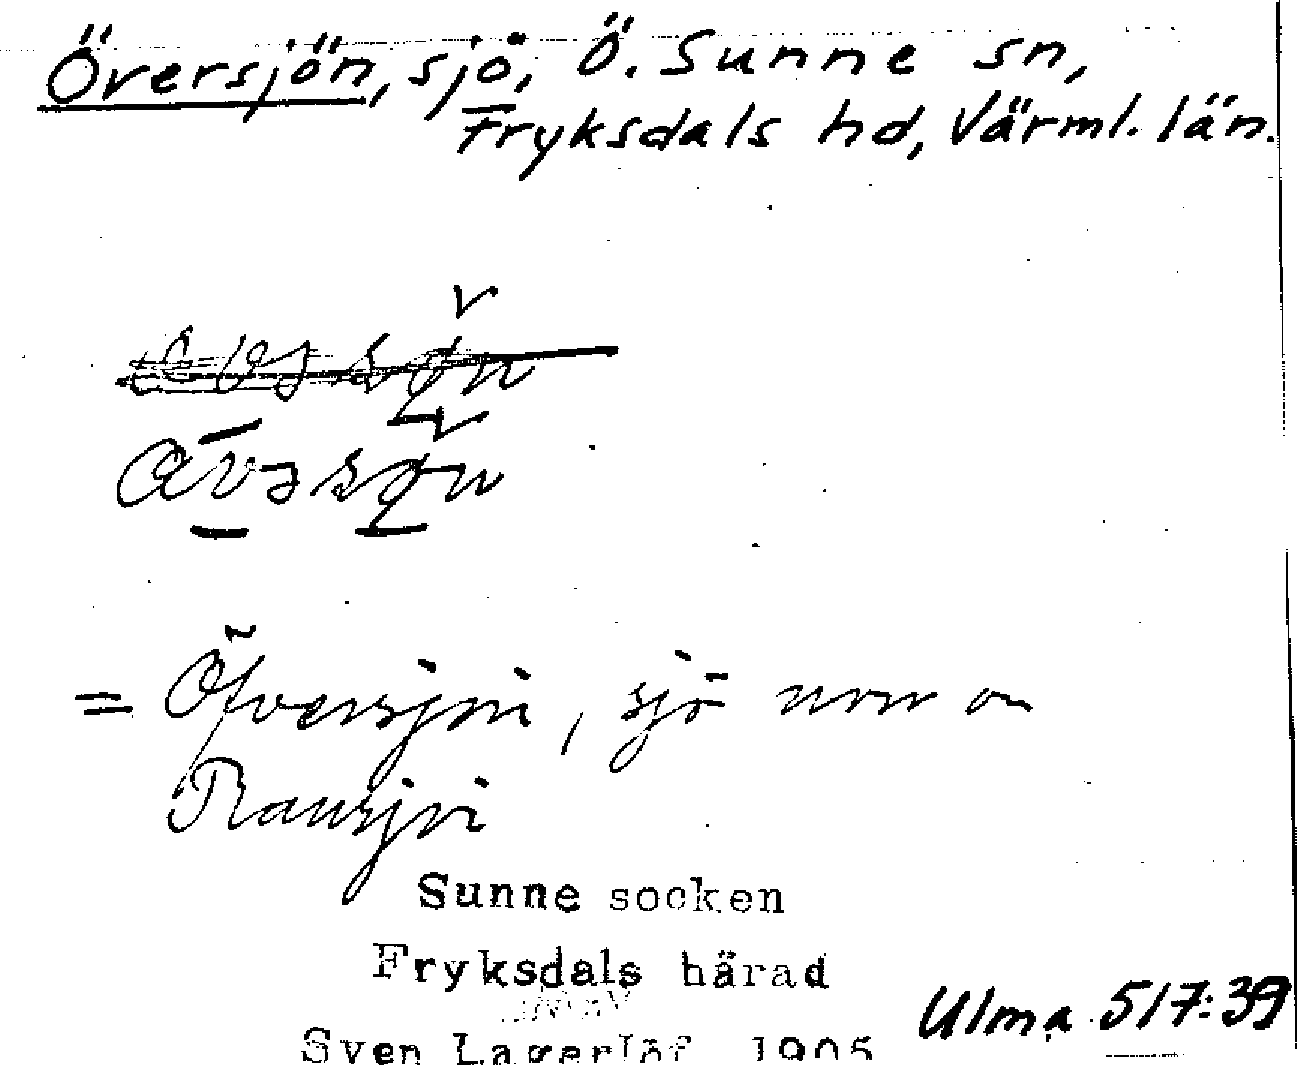 Översjön, sjö, Ö. Sunne sn,
Fryksdals hd, Värml. län.
= Öfversjön, sjö norr om
Ransjön
Sunne socken
Fryksdals härad
Sven Lagerlöf 1905
Ulma 517:39